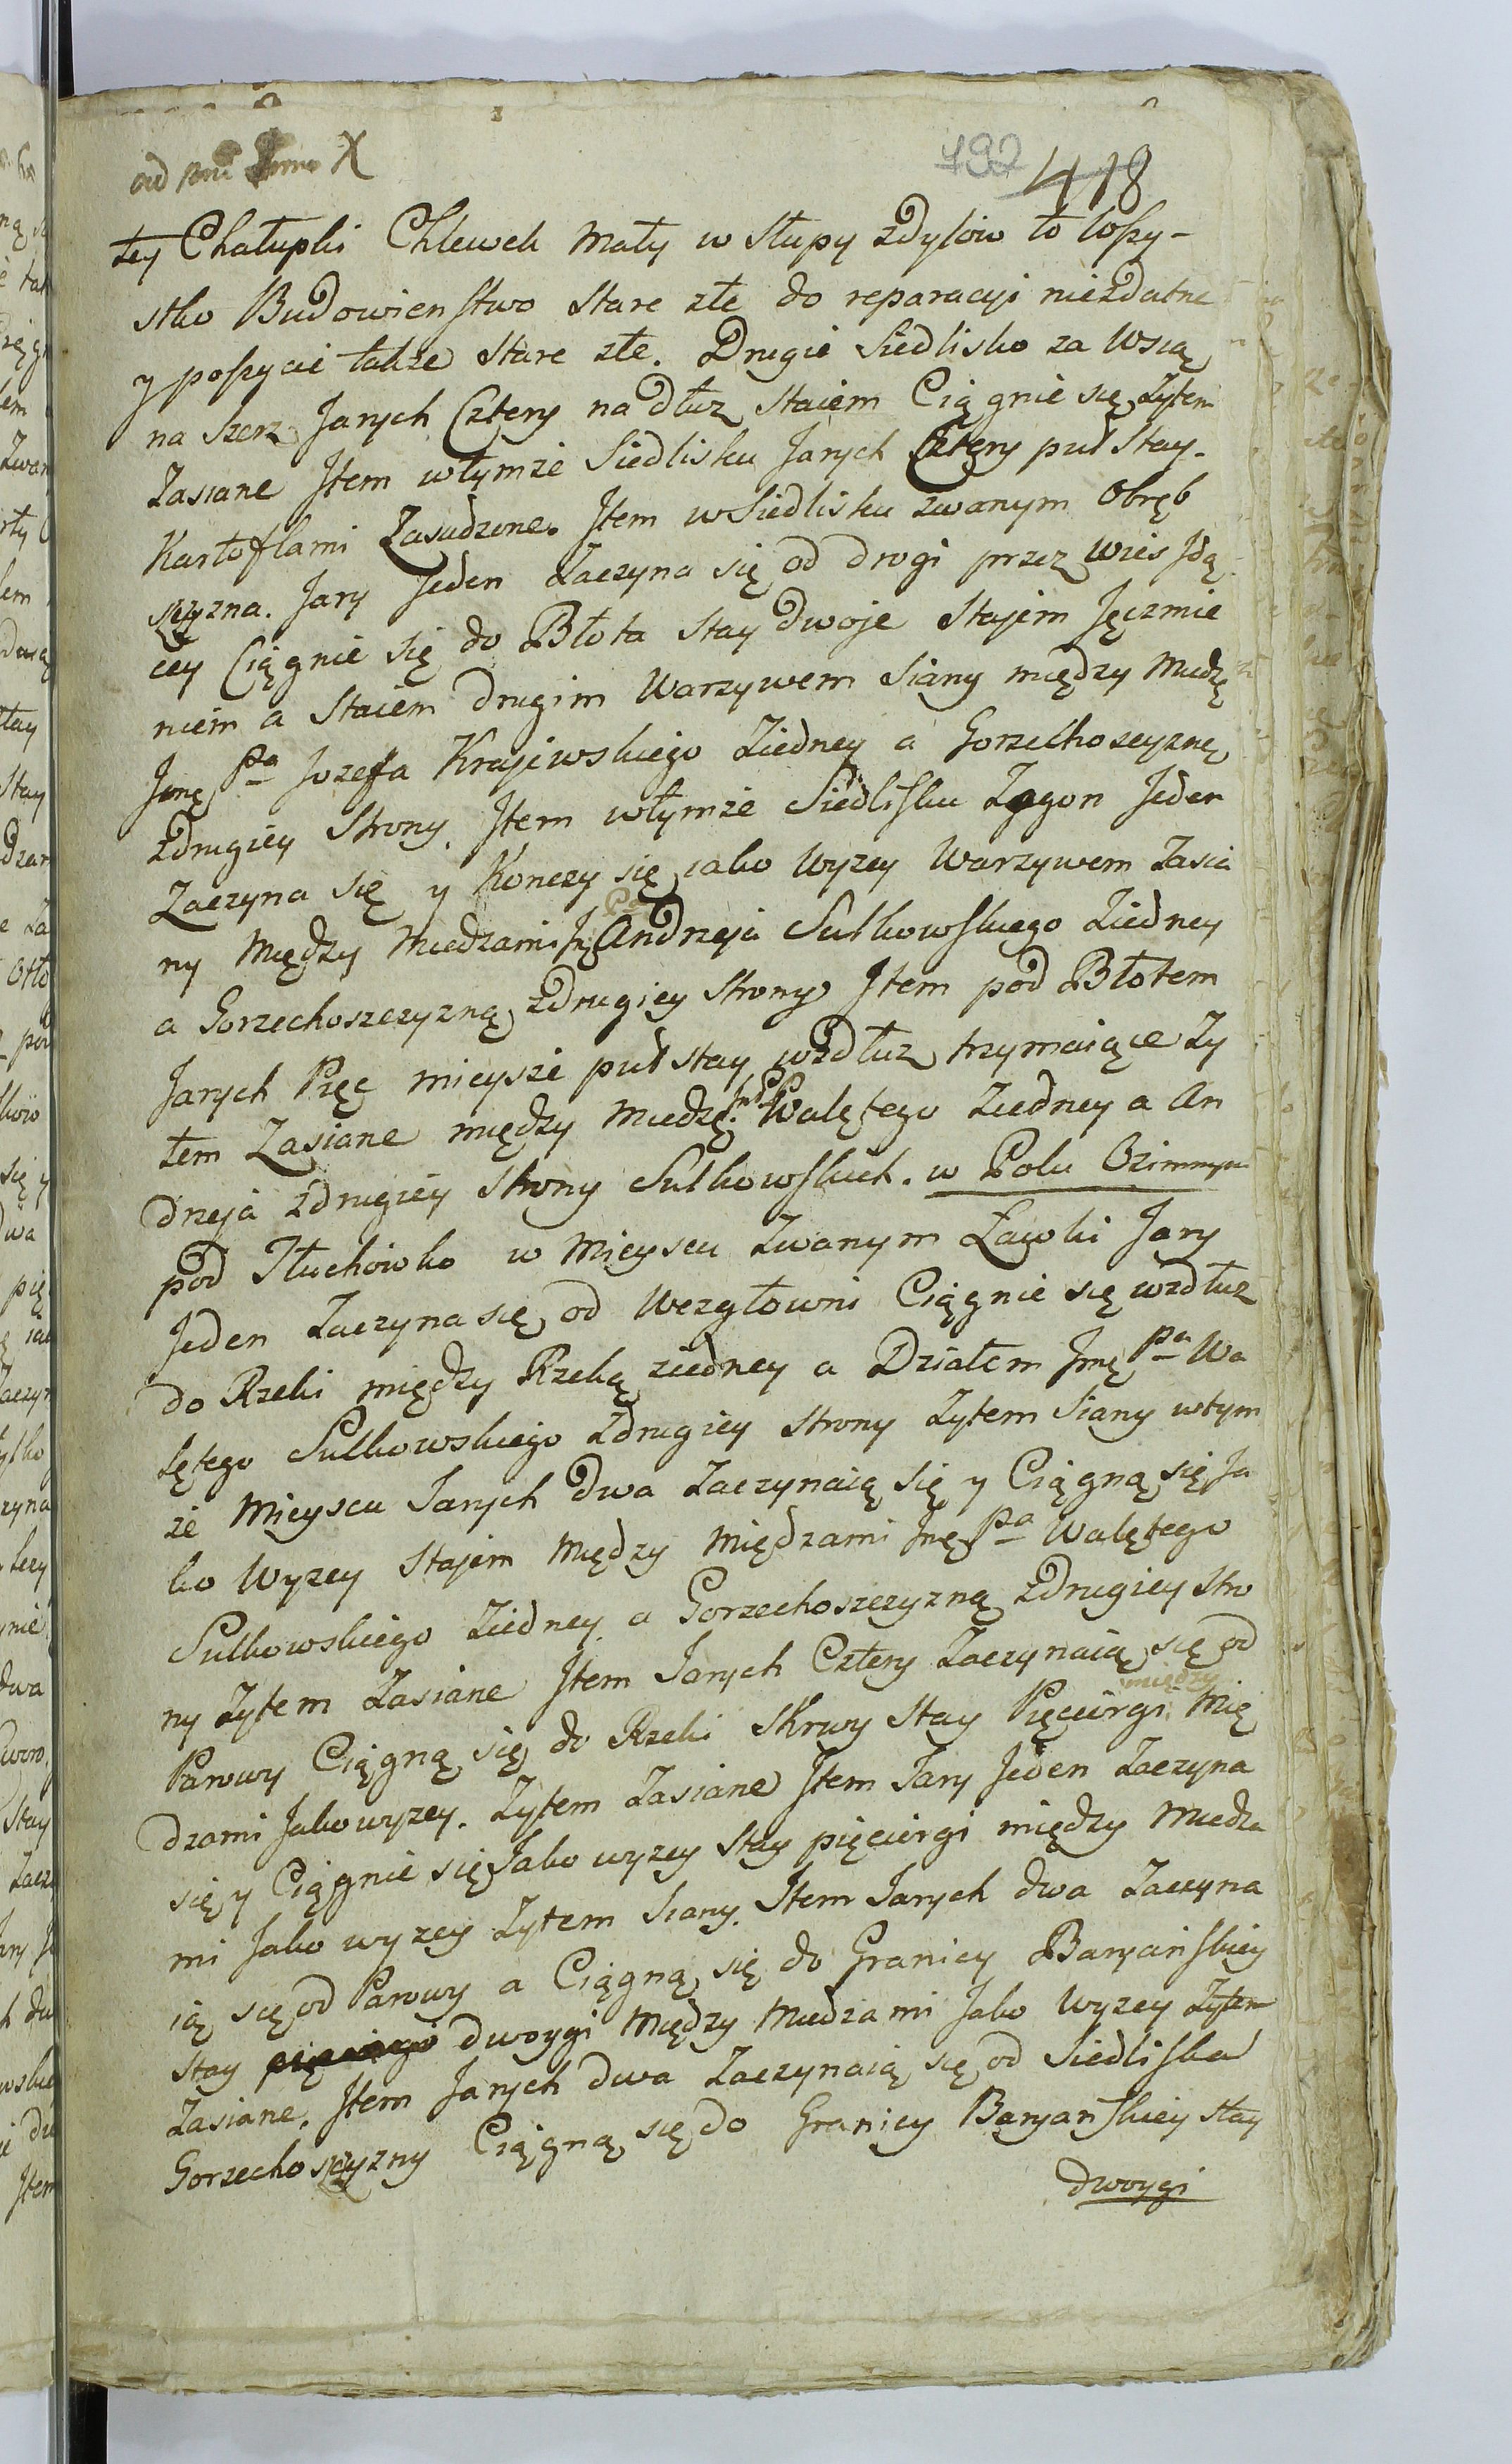 192 418
tey Chałupki Chlewek mały w słupy zdylów to wszy-
stko Budowienstwo stare złe do reparacyi niezdatne
y poszycie także stare złe. Drugie Siedlisko za wsią
na szerz Jarych Cztery nadłuz staiem Ciągnie się Zytem
Zasiane Jtem wtymże Siedlisku Jarych Cztery puł stay.
Kartoflami Zasadzone. Jtem wSiedlisku zwanym Obręb
szyzna. Jary Jeden Zaczyna się od drogi przez wies Jdą
cey Ciągnie się do Błota stay dwoje Stajem Jęczmie
niem a Staiem drugim Warzywem Siany między miedzę
Jmę Pa Jozefa Krajewskiego Ziedney a Gorzechosczyznę
zdrugiey Strony. Jtem wtymże Siedlisku Zagon Jeden
Zaczyna się y Konczy się iako wyzey Warzywem Zasia
ny między miedzami Ję Pa Andrzeja Sulkowskiego Ziedney
a Gorzechoszczyzną zdrugiey strony Jtem pod Błotem
Jarych Pięc mieysze puł stay wzdłuz trzymaiące Zy
tem Zasiane między miedzę Jmę P Walętego Ziedney a An
drzeja zdrugiey strony Sulkowskich. w Polu Ozimnym
pod Tłuchowko w mieyscu Zwanym Ławki Jary
Jeden Zaczyna się od Wezgłowni Ciągnie się wzdłuz
do Rzeki między Rzeką ziedney a Działem Jmę Pa Wa
lętego Sulkowskiego Zdrugiey strony Zytem Siany wtym
że Mieyscu Jarych dwa Zaczynaią się y Ciągną się Ja
ko wyzey Stajem między międzami Jmę Pa Walętego
Sulkowskiego Ziedney a Gorzechoszczyzną zdrugiey stro
ny Zytem Zasiane Jtem Jarych Cztery Zaczynaią się od
Parowy Ciągną się do Rzeki Skrwy stay Pięciorgi między Mię
dzami Jako wyzey. Zytem Zasiane Jtem Jary Jeden Zaczyna
się y Ciągnie się Jako wyzey stay pięciorgi między miedza
mi Jako wyzey Zytem Siany. Jtem Jarych dwa Zaczyna
ią się od Parowy a Ciągną się do Granicy Baryańskiey
stay pięciorgo dwoygi między miedzami Jako wyzey Zytem
Zasiane. Jtem Jarych dwa Zaczynaią się od Siedliska
Gorzechosczyzny Ciągną się do Granicy Baryańskiey stay
dwoygi